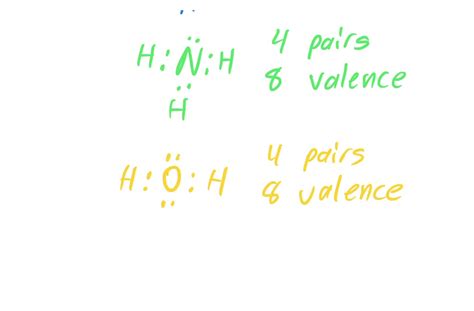 H:N:H 4 pairs
8 valence
H
H:O:H 4 pairs
8 valence